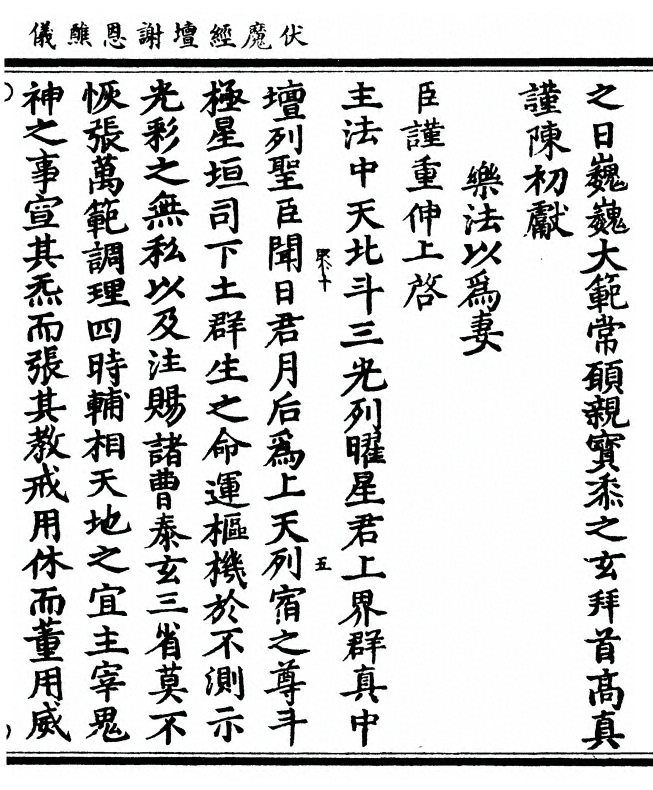 伏魔經壇謝恩醮儀
之日巍巍大範常頋親寳黍之玄拜首高真
謹陳初獻
樂法以爲妻
臣謹重伸上啓
主法中天北斗三光列曜星君上界群真中
壇列聖臣聞日君月后爲上天列宿之尊斗
極星垣司下土群生之命運樞機於不測示
光彩之無私以及注賜諸曹泰玄三省莫不
恢張萬範調理四時輔相天地之宜主宰鬼
神之事宣其炁而張其教戒用休而董用威
五